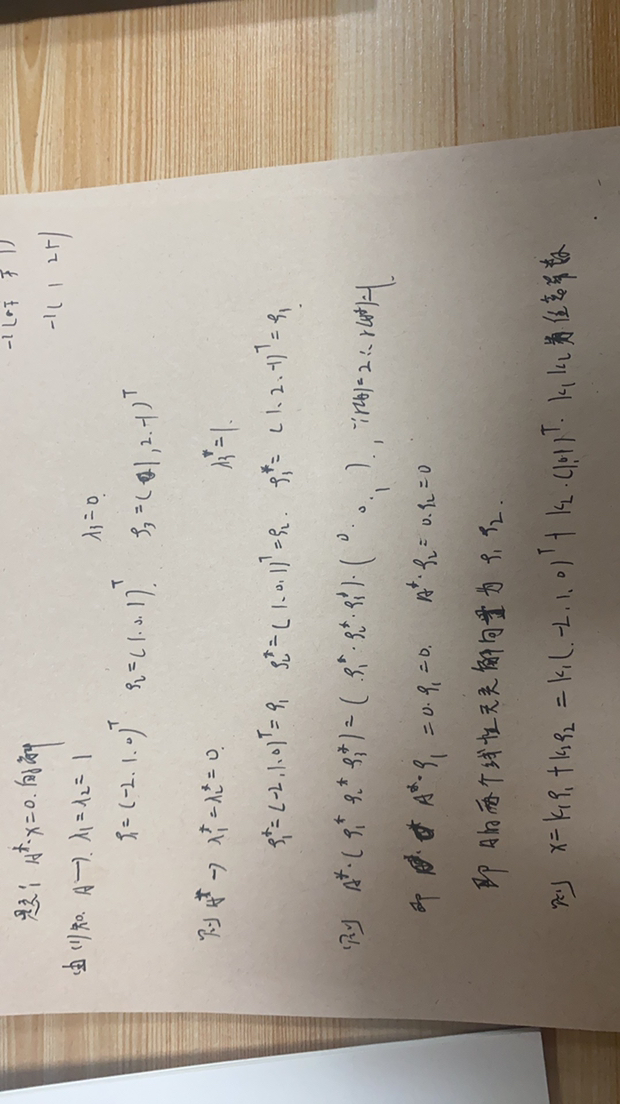 -1 ( 1 2 5 )
题3) A*·x=0. 的解
由(1)知. A→. λ₁=λ₂=1 λ₃=0.
ξ₁=(-2.1.0)ᵀ ξ₂=(1.0.1)ᵀ. ξ₃=(1,2.-1)ᵀ
则 A* → λ₁*=λ₂*=0. λ₃*=1.
ξ₁*=(-2.1.0)ᵀ=ξ₁ ξ₂*=(1.0.1)ᵀ=ξ₂. ξ₃*=(1.2.-1)ᵀ=ξ₃.
则 A*·(ξ₁* ξ₂* ξ₃*)=(ξ₁*·ξ₂*·ξ₃*)·(0. 0. 1), ∵r(A)=2∴r(A*)=1.
即 A*·ξ₁=0.ξ₁=0. A*·ξ₂=0.ξ₂=0
即 A的两个线性无关解向量为 ξ₁ ξ₂.
则 x=k₁ξ₁+k₂ξ₂=k₁(-2.1.0)ᵀ+k₂.(1,0,1)ᵀ. k₁ k₂为任意常数